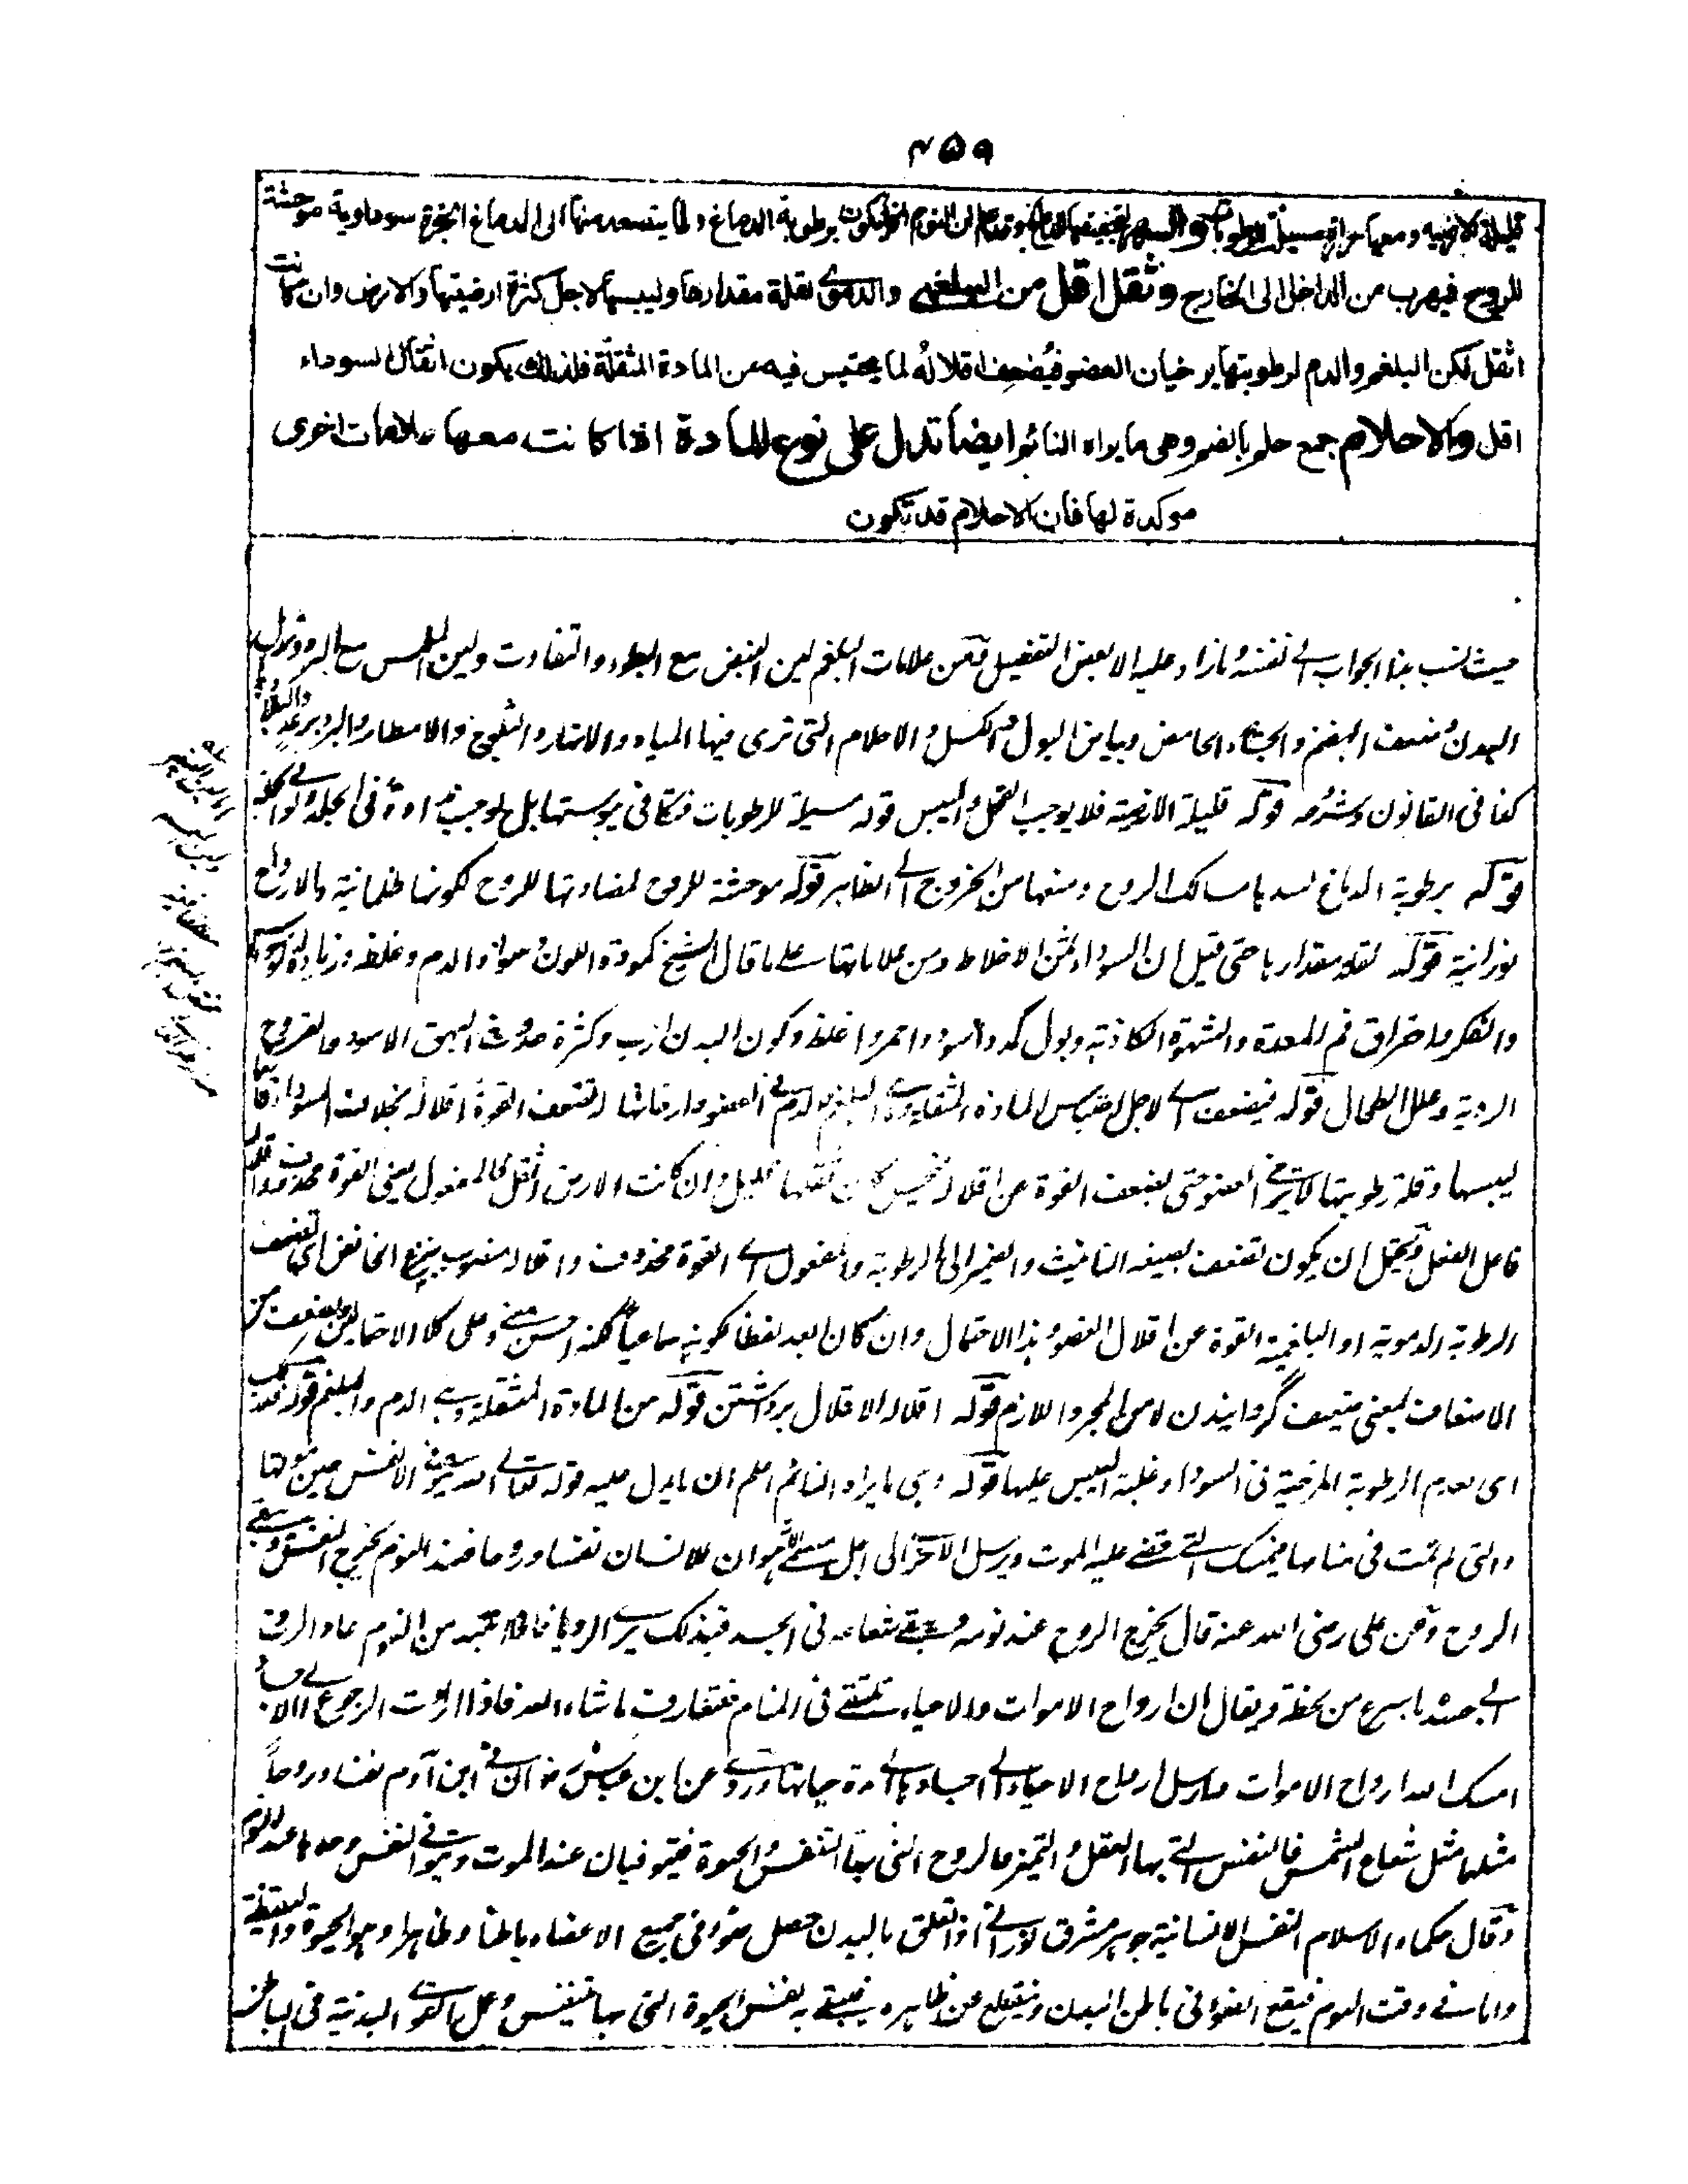 ۴۵۹
قليلة الارضية ومعها حرارة مسيلة للرطوبات والسهر لتجفيفها الدماغ وقد علم ان النوم انما يكون برطوبة الدماغ ولما يتصعد منها الى الدماغ ابخرة سوداوية موحشة
للروح فيهرب من الداخل الى الخارج وثقل اقل من البلغمى والدموى لقلة مقدارها وليبسها لاجل كثرة ارضيتها والارض وان كانت
اثقل لكن البلغم والدم لرطوبتهما يرخيان العضو فيضعف اقلاله لما يحتبس فيه من المادة المثقلة فلذلك يكون اثقال السوداء
اقل والاحلام جمع حلم بالضم وهى ما يراه النائم ايضا تدل على نوع المادة اذا كانت معها علامات اخرى
موكدة لها فان الاحلام قد تكون
حيث نسب هذا الجواب الے نفسه وما زاد عليه الا بعض التفصيل فمن علامات البلغم لين النبض مع البطوء والتفاوت ولين الملمس مع البرودة
البدن وضعف الهضم والجشاء الحامض وبياض البول والكسل والاحلام التى ترى فيها المياه والانهار والثلوج والامطار والبرد
كذا فى القانون وشرحه قوله قليلة الارضية فلا يوجب الثقل واليبس قوله مسيلة للرطوبات فتكافى يبوستها بل يوجب
قوله برطوبة الدماغ لسدها مسالك الروح ومنعها من الخروج الے الظاهر قوله موحشة للروح لمضادتها للروح لكونها ظلمانية والارواح
نورانية قوله لقلة مقدارها حتى قيل ان السوداء ثمن الاخلاط ومن علاماتها على ما قال الشيخ كمودة اللون وسواد الدم وغلظه وزيادة
والفكر واحتراق فم المعدة والشهوة الكاذبة وبول كمد واسود واحمر واغلظ وكون البدن ازب وكثرة حدوث البهق الاسود والقروح
الردية وعلل الطحال قوله فيضعف اے لاجل احتباس المادة المثقلة وهى البلغم والدم فى العضو وارخائها له تضعف القوة اقلاله بخلاف السوداء فانها
ليبسها وقلة رطوبتها لا ترخى العضو حتى يضعف القوة عن اقلاله فحينئذ كان ثقلها قليل وان كانت الارض اثقل فالمفعول يعنى القوة محذوف
فاعل الفعل ويحتمل ان يكون تضعف بصيغة التانيث والضمير الى الرطوبة والمفعول اے القوة محذوف واقلاله منصوب بنزع الخافض اى تضعف
الرطوبة الدموية او البلغمية القوة عن اقلال العضو وهذا الاحتمال وان كان ابعد لفظا لكونه سماعيا لكنه احسن معنى وعلى كلا الاحتمالين يضعف من
الاضعاف بمعنى ضعيف گردانيدن لا من المجرد اللازم قوله اقلاله الاقلال برداشتن قوله من المادة المثقلة وهى الدم والبلغم قوله فلذلك
اى لعدم الرطوبة المرخية فى السوداء وغلبة اليبس عليها قوله وهى ما يراه النائم اعلم ان ما يدل عليه قوله تعالے الله يتوفى الانفس حين موتها
والتى لم تمت فى منامها فيمسك التے قضى عليها الموت ويرسل الاخرى الى اجل مسمى هو ان للانسان نفسا وروحا فعند النوم يخرج النفس ويبقى
الروح وعن على رضى الله عنه قال يخرج الروح عند نومه ويبقى شعاعه فى الجسد فبذلك يرى الرويا فاذا انتبه من النوم عاد الروح
الے جسده باسرع من لحظة ويقال ان ارواح الاموات والاحياء تلتقى فى المنام فتتعارف ما شاء الله فاذا ارادت الرجوع الے الاجساد
امسك الله ارواح الاموات وارسل ارواح الاحياء الے اجسادها الے مدة حياتها وروى عن ابن عباس رض ان فى ابن آدم نفسا وروحا
مثلهما مثل شعاع الشمس فالنفس التے بها العقل والتميز والروح التى بها النفس والحيوة فيتوفيان عند الموت ويتوفى النفس وحدها عند النوم
وقال حكماء الاسلام النفس الانسانية جوهر مشرق نورانى اذا تعلق بالبدن حصل ضوءه فى جميع الاعضاء باطنا وظاهرا وهو الحيوة واليقظة
واما فى وقت النوم فيقع الضوء فى باطن البدن وينقطع عن ظاهره فيبقى به نفس الحيوة التى بها تنفس وعمل القوى البدنية فى الباطن